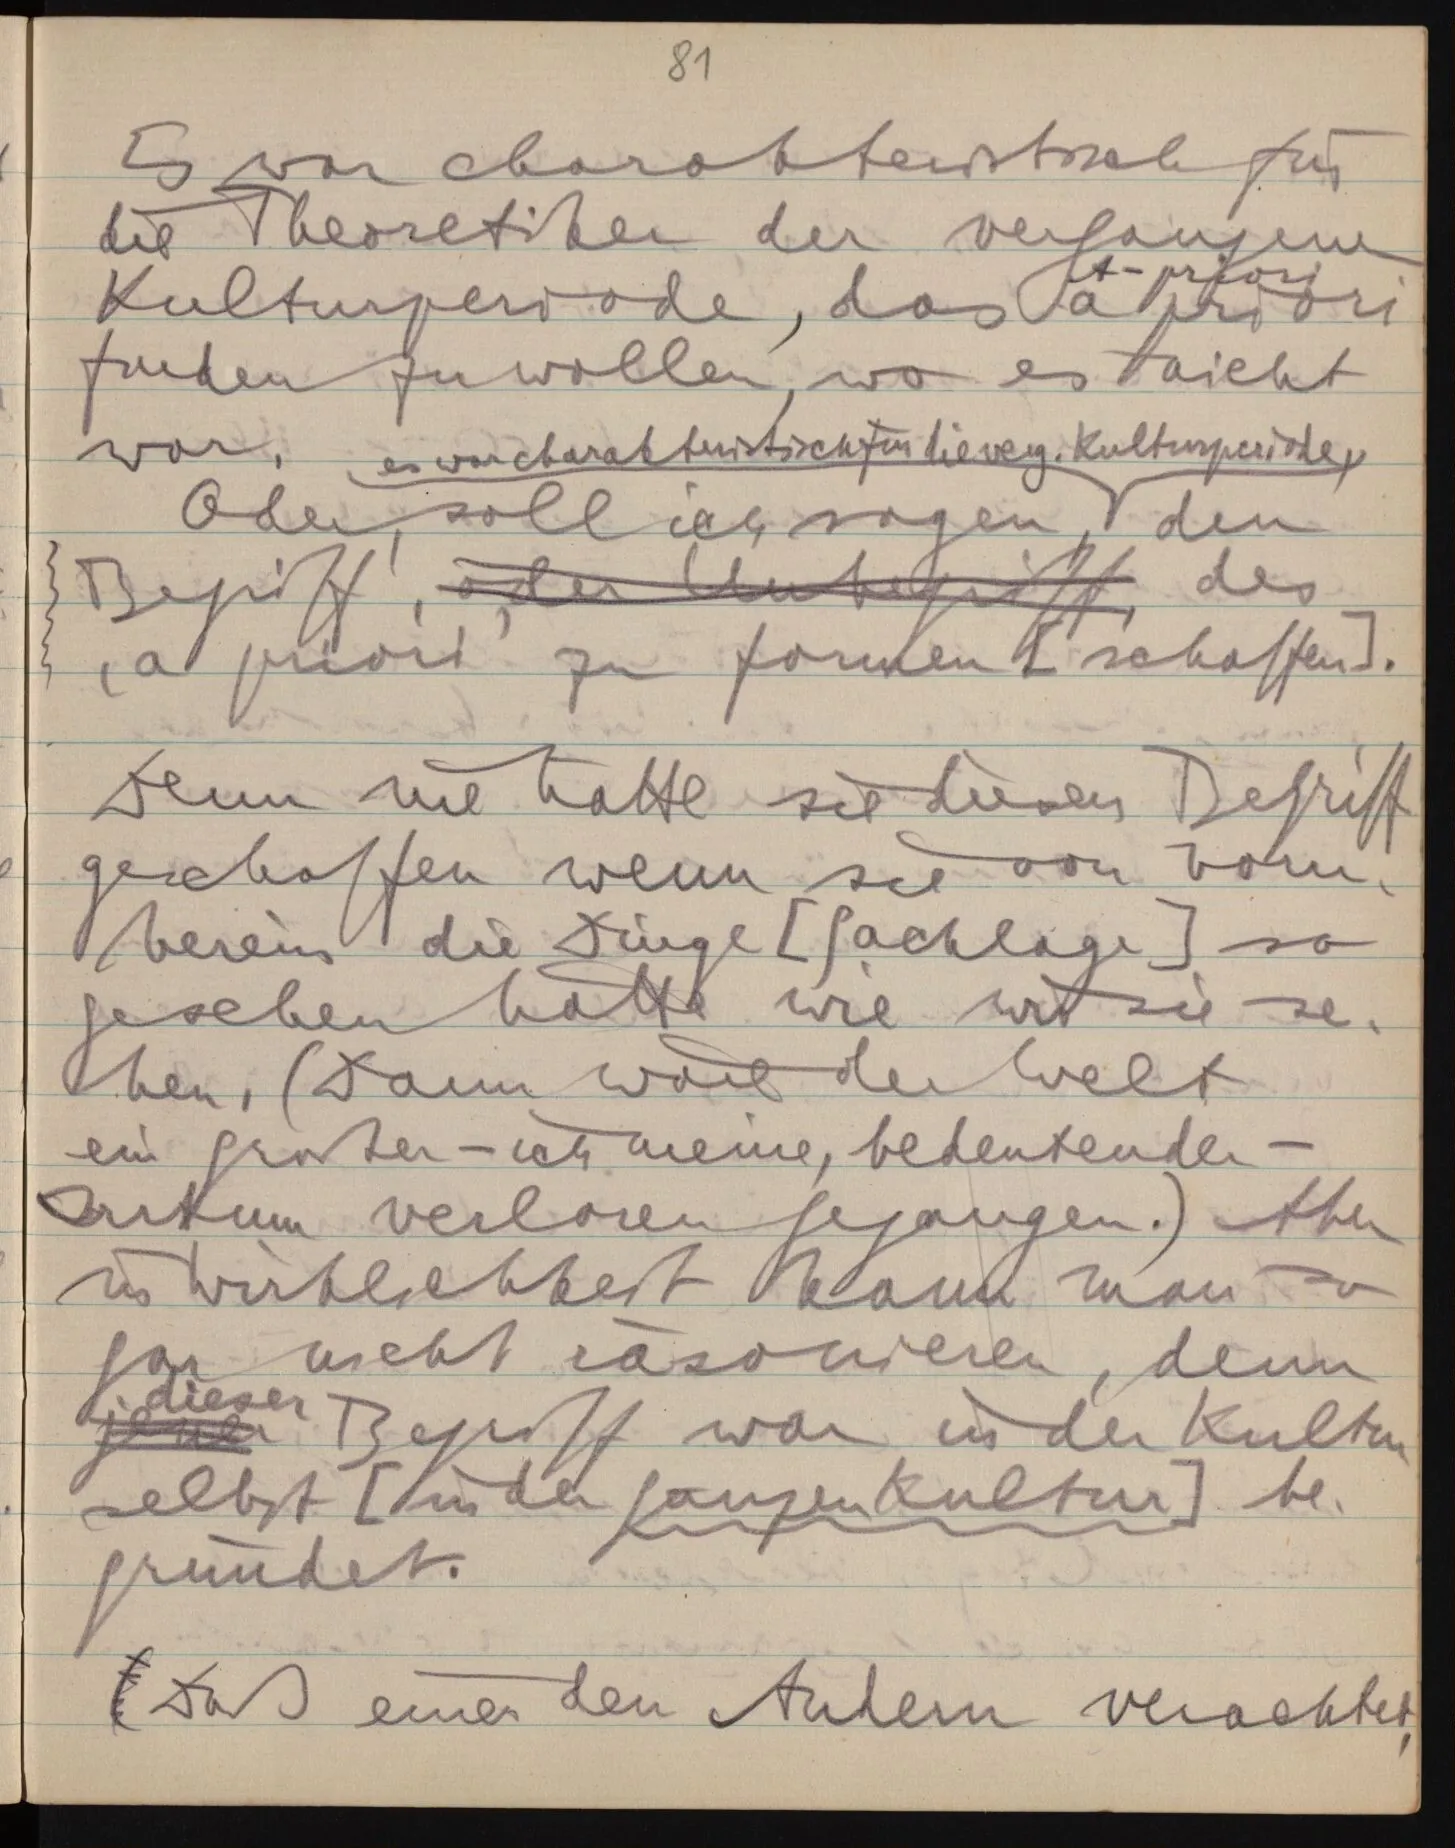 81
Es war charakteristisch für
die Theoretiker der vergangenen
A-priori
Kulturperiode, das a priori
finden zu wollen, wo es nicht
war.
es war charakteristisch für die verg. Kulturperiode,
Oder, soll ich sagen, den
Begriff, oder Unbegriff, des
‚a priori' zu formen [schaffen].
Denn nie hätte sie diesen Begriff
geschaffen wenn sie von vorn-
herein die Dinge [Sachlage] so
gesehen hätte wie wir sie se-
hen. (Dann wäre der Welt
ein großer – ich meine, bedeutender –
Irrtum verloren gegangen.) Aber
in Wirklichkeit kann man so
gar nicht räsonieren, denn
dieser
jener Begriff war in der Kultur
selbst [in der ganzen Kultur] be-
gründet.
(Daß einer den Andern verachtet,